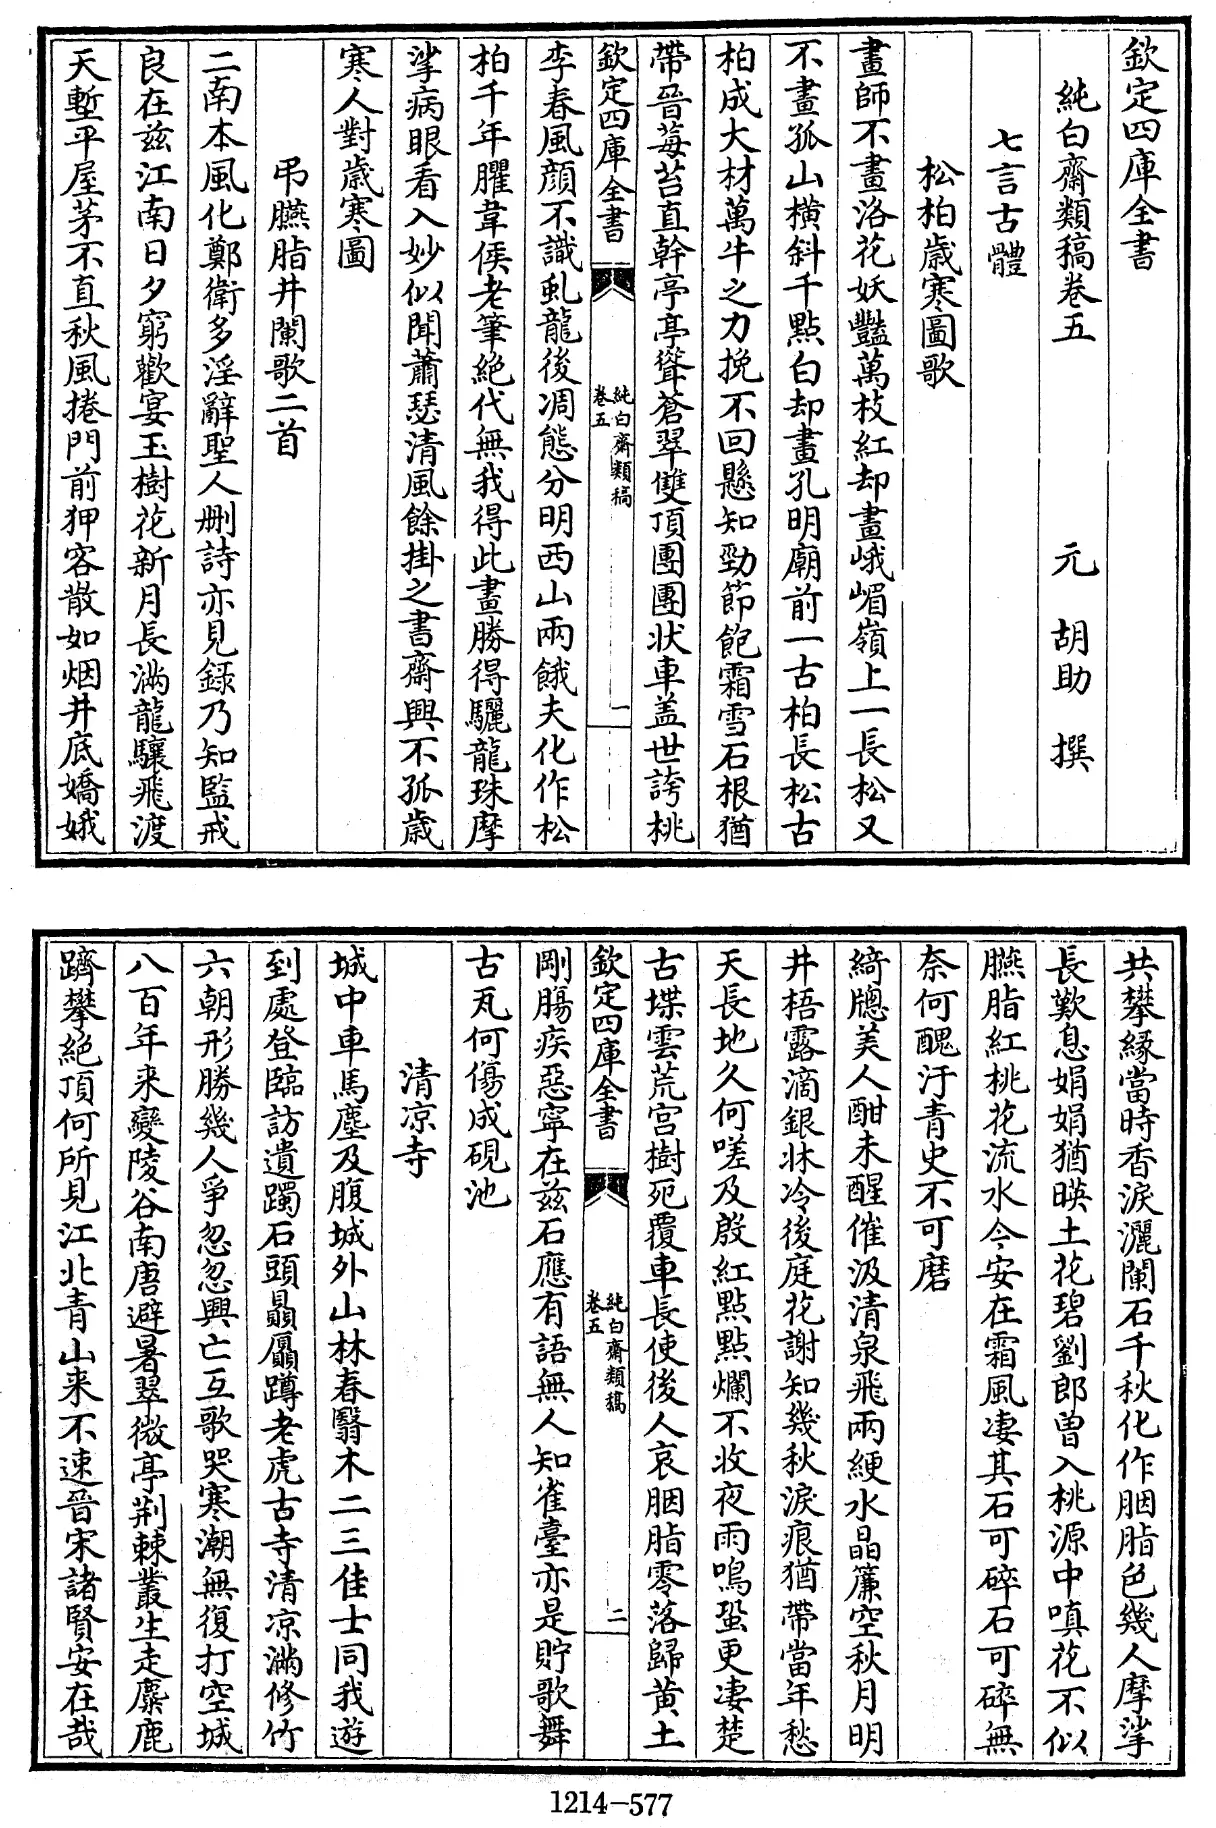 欽定四庫全書
純白齋類稿卷五
元 胡助 撰
七言古體
松柏歲寒圖歌
畫師不畫洛花妖豔萬枝紅却畫峨嵋嶺上一長松又
不畫孤山橫斜千點白却畫孔明廟前一古柏長松古
柏成大材萬牛之力挽不回懸知勁節飽霜雪石根猶
帶晉莓苔直幹亭亭聳蒼翠雙頂團團狀車盖世誇桃
欽定四庫全書
純白齋類稿
卷五
一
李春風顏不識虬龍後凋態分明西山兩餓夫化作松
柏千年臞韋侯老筆絕代無我得此畫勝得驪龍珠摩
挲病眼看入妙似聞蕭瑟清風餘掛之書齋興不孤歲
寒人對歲寒圖
弔臙脂井闌歌二首
二南本風化鄭衛多淫辭聖人刪詩亦見錄乃知監戒
良在兹江南日夕窮歡宴玉樹花新月長滿龍驤飛渡
天塹平屋茅不直秋風捲門前狎客散如烟井底嬌娥
共攀緣當時香淚灑闌石千秋化作胭脂色幾人摩挲
長歎息娟娟猶暎土花碧劉郎曾入桃源中嗔花不似
臙脂紅桃花流水今安在霜風凄其石可碎石可碎無
奈何醜汙青史不可磨
綺牕美人酣未醒催汲清泉飛兩綆水晶簾空秋月明
井梧露滴銀牀冷後庭花謝知幾秋淚痕猶帶當年愁
天長地久何嗟及殷紅點點爛不收夜雨鳴蛩更凄楚
古堞雲荒宮樹死覆車長使後人哀胭脂零落歸黃土
欽定四庫全書
純白齋類稿
卷五
二
剛腸疾惡寧在兹石應有語無人知雀臺亦是貯歌舞
古瓦何傷成硯池
清凉寺
城中車馬塵及腹城外山林春翳木二三佳士同我遊
到處登臨訪遺躅石頭贔屭蹲老虎古寺清凉滿修竹
六朝形勝幾人爭忽忽興亡互歌哭寒潮無復打空城
八百年来變陵谷南唐避暑翠微亭荆棘叢生走麋鹿
躋攀絕頂何所見江北青山来不速晉宋諸賢安在哉
1214-577